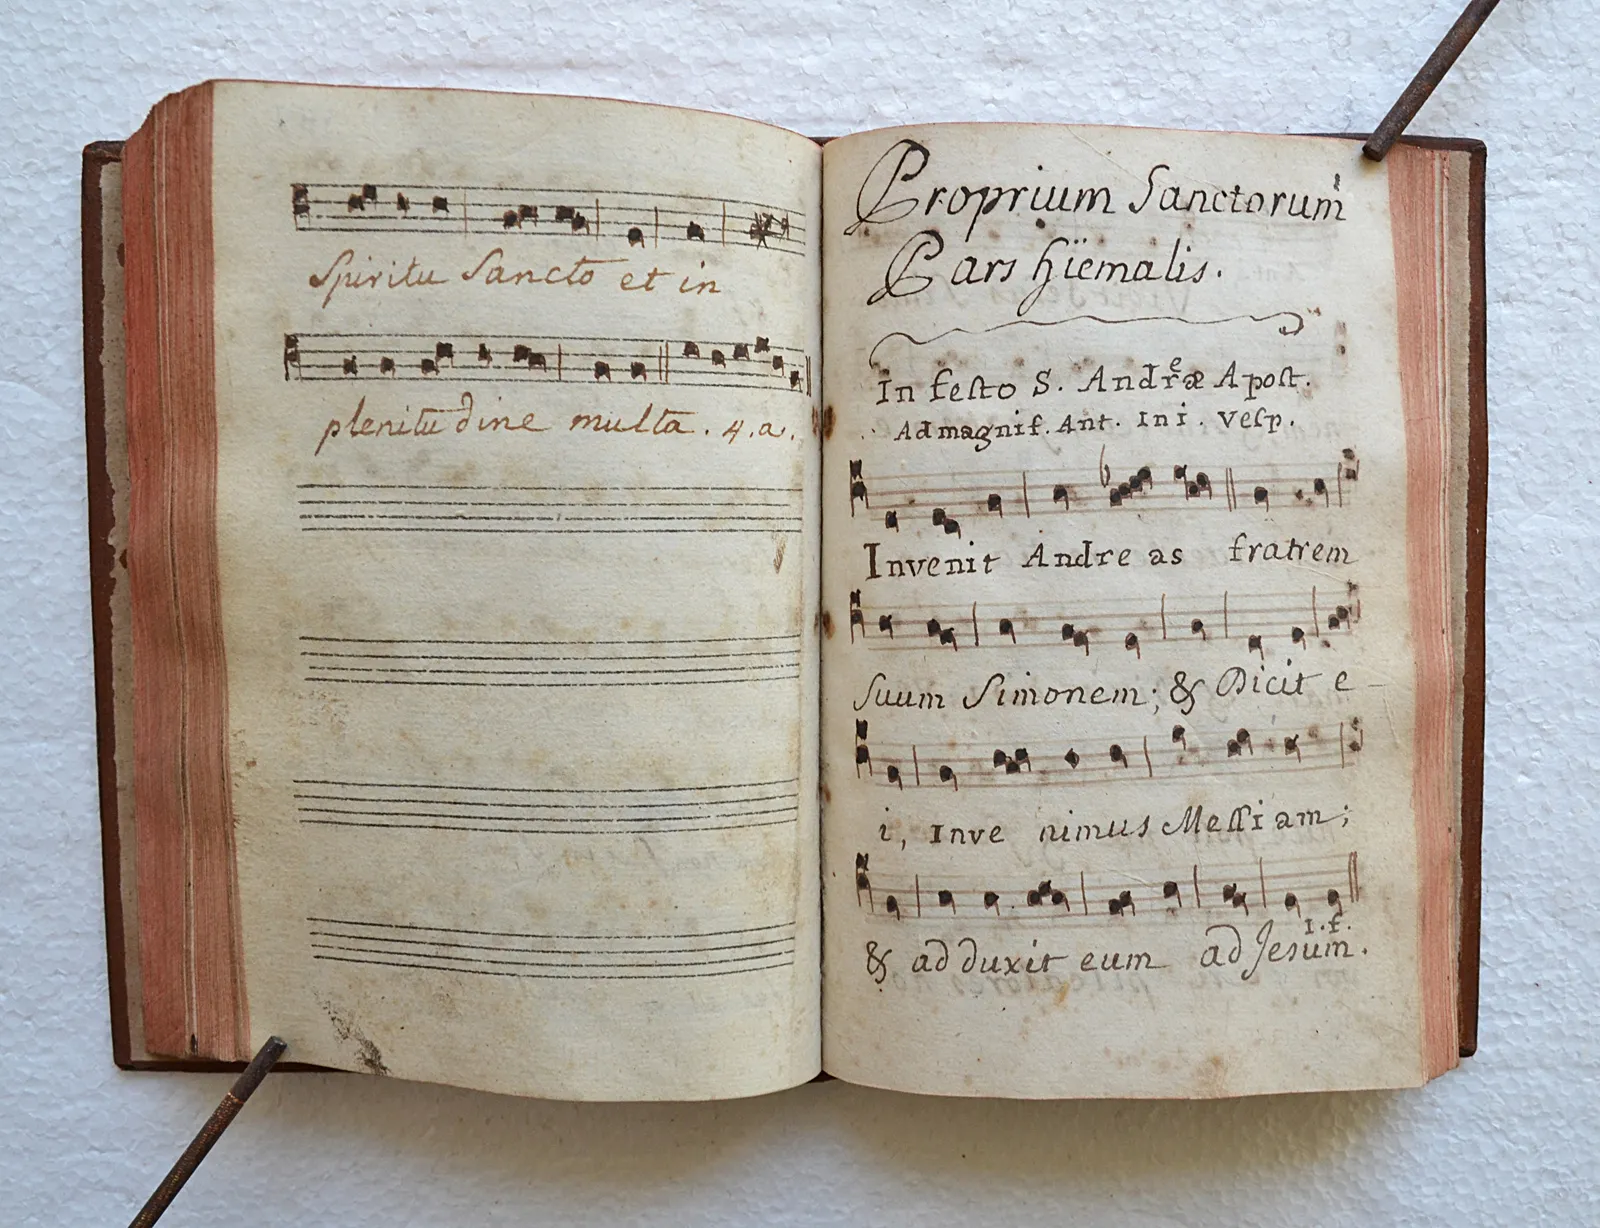 Spiritu Sancto et in
plenitudine multa. 4. a.
Proprium Sanctorum
Pars hÿemalis.
In festo S. Andreæ Apost.
Ad magnif. Ant. In i. Vesp.
Invenit Andre as fratrem
suum Simonem; & Dicit e-
i, Inve nimus Messiam;
& ad duxit eum ad Jesum.
1. f.